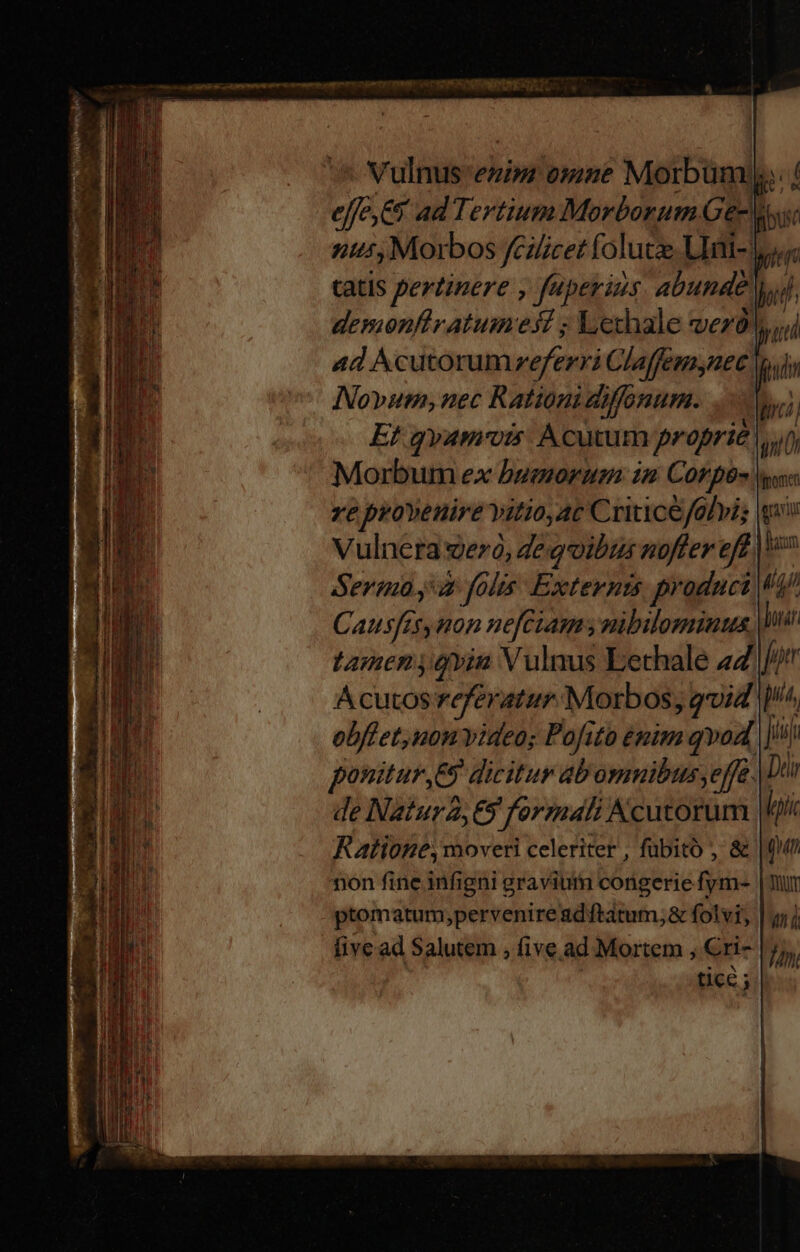 Vulnus enim omne Morbum
eſſe, & ad Tertium Morborum Ge-
nus, Morbos ſcilicet ſolutæ Uni-
tatis pertinere, ſuperiùs abundè
demonſtratum est; Lethale verò
ad Acutorum referri Claſſem, nec
Novum, nec Rationi diſſonum.
Et qvamvis Acutum propriè
Morbum ex humorum in Corpo-
re provenire vitio, ac Criticè ſolvi;
Vulnera verò, de qvibus noſter eſt
Sermo, à ſolis Externis produci
Cauſſis, non neſciam, nihilominus
tamen, qvin Vulnus Lethale ad
Acutos referatur Morbos, qvid
obſtet, non video; Poſito enim qvod
ponitur, & dicitur ab omnibus, eſſe
de Naturâ, & formali Acutorum
Ratione, moveri celeriter, ſubitò, &
non ſine inſigni gravium congerie ſym-
ptomatum, pervenire ad ſtatum, & ſolvi,
ſive ad Salutem, ſive ad Mortem, Cri-
ticè;